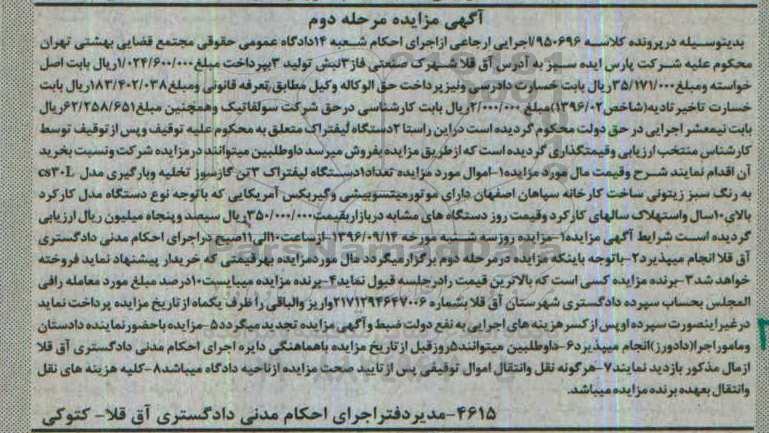 آگهی مزایده مرحله دوم
بدینوسیله در پرونده کلاسه ۹۵۰۶۹۶/اجرایی ارجاعی ازاجرای احکام شعبه ۱۴دادگاه عمومی حقوقی مجتمع قضایی بهشتی تهران
محکوم علیه شرکت پارس ایده سبز به آدرس آق قلا شهرک صنعتی فاز۳نبش تولید ۳بپرداخت مبلغ۱/۰۲۴/۶۰۰/۰۰۰ریال بابت اصل
خواسته ومبلغ۳۵/۱۷۱/۰۰۰ریال بابت خسارت دادرسی ونیزپرداخت حق الوکاله وکیل مطابق تعرفه قانونی ومبلغ۱۸۳/۴۰۲/۰۳۸ریال بابت
خسارت تاخیر تادیه(شاخص۱۳۹۶/۰۲)مبلغ ۲/۰۰۰/۰۰۰ریال بابت کارشناسی درحق شرکت سولفاتیک وهمچنین مبلغ۶۲/۲۵۸/۶۵۱ریال
بابت نیمعشر اجرایی در حق دولت محکوم گردیده است دراین راستا ۲دستگاه لیفتراک متعلق به محکوم علیه توقیف وپس ازتوقیف توسط
کارشناس منتخب ارزیابی وقیمتگذاری گردیده است که ازطریق مزایده بفروش میرسد داوطلبین میتوانند درمزایده شرکت ونسبت بخرید
آن اقدام نمایند شرح وقیمت مال مورد مزایده۱-اموال مورد مزایده تعداد۱دستگاه لیفتراک ۳تن گازسوز تخلیه وبارگیری مدل cs۳۰L
به رنگ سبز زیتونی ساخت کارخانه سپاهان اصفهان دارای موتورمیتسوبیشی وگیربکس آمریکایی که باتوجه نوع دستگاه مدل کارکرد
بالای۱۰سال واستهلاک سالهای کارکرد وقیمت روز دستگاه های مشابه دربازاربقیمت۳۵۰/۰۰۰/۰۰۰ریال سیصد وپنجاه میلیون ریال ارزیابی
گردیده است شرایط آگهی مزایده۱-مزایده روزسه شنبه مورخه ۱۳۹۶/۰۹/۱۴-ازساعت۱۰الی۱۱صبح دراجرای احکام مدنی دادگستری
آق قلاانجام میپذیرد۲-باتوجه باینکه مزایده درمرحله دوم برگزارمیگردد مال موردمزایده بهرقیمتی که خریدار پیشنهاد نماید فروخته
خواهد شد۳-برنده مزایده کسی است که بالاترین قیمت رادرجلسه قبول نماید۴-برنده مزایده میبایست۱۰درصد مبلغ مورد معامله رافی
المجلس بحساب سپرده دادگستری شهرستان آق قلا بشماره ۲۱۷۱۲۹۴۶۴۷۰۰۶واریز والباقی را ظرف یکماه ازتاریخ مزایده پرداخت نماید
درغیراینصورت سپرده اوپس ازکسرهزینه های اجرایی به نفع دولت ضبط وآگهی مزایده تجدید میگردد۵-مزایده باحضورنماینده دادستان
ومامور اجرا(دادورز)انجام میپذیرد۶-داوطلبین میتوانند۵روزقبل ازتاریخ مزایده باهماهنگی دایره اجرای احکام مدنی دادگستری آق قلا
ازمال مذکور بازدید نمایند۷-هرگونه نقل وانتقال اموال توقیفی پس از تایید صحت مزایده ازناحیه دادگاه میباشد۸-کلیه هزینه های نقل
وانتقال بعهده برنده مزایده میباشد.
۴۶۱۵-مدیردفتراجرای احکام مدنی دادگستری آق قلا- کتوکی